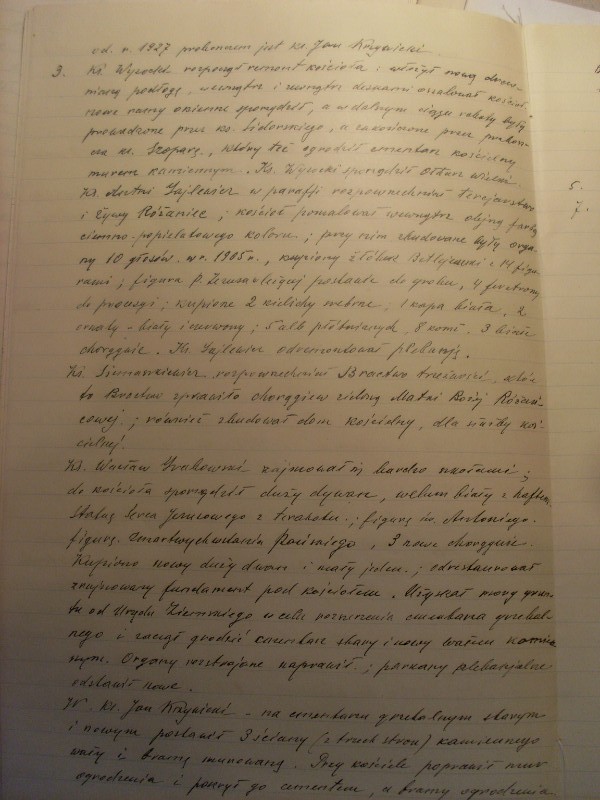 od r. 1927 proboszczem jest ks. Jan Krzywicki.
3. Ks. Wysocki rozpoczął remont kościoła i włożył nową drew-
nianą podłogę, wewnątrz i zewnątrz deskami oszalował kościół,
nowe ramy okienne sporządził, a w dalszym ciągu roboty były
prowadzone przez ks. Sidorskiego, a zakończone przez probosz-
cza ks. Szoparę, który też ogrodził cmentarz kościelny
murem kamiennym. Ks. Wysocki sporządził ołtarz wielki.
Ks. Antoni Sajlewicz w parafii rozpowszechnił tercjarstwo
i Żywy Różaniec; kościół pomalował wewnątrz olejną farbą
ciemno-popielatowego koloru; przy nim zbudowane były orga-
ny 10 głosów w r. 1905 r., kupiony żłobek Betlejemski z 14 figu-
rami; figura P. Jezusa leżącej postawie do grobu, 4 feretrony
do procesji; kupione 2 kielichy srebrne; 1 kapa biała, 2
ornaty - biały i czerwony; 5 alb płóciennych, 8 komż, 3 białe
chorągwie. Ks. Sajlewicz odremontował plebanję.
Ks. Simaszkiewicz rozpowszechnił Bractwo trzeźwości, któ-
re Bractwo sprawiło chorągiew zieloną Matki Bożej Różań-
cowej; również zbudował dom kościelny, dla służby koś-
cielnej.
Ks. Wacław Grabowski zajmował się bardzo szkołami;
do kościoła sporządził duży dywan, welum biały z haftem,
statuę Serca Jezusowego z terakotu; figurę św. Antoniego.
figurę Zmartwychwstania Pańskiego, 3 nowe chorągwie.
Kupiono nowy duży dzwon i mały jeden; odrestaurował
zrujnowany fundament pod kościołem. Uzyskał morg grun-
tu od Urzędu Ziemskiego w celu rozszerzenia cmentarza grzebal-
nego i zaczął grodzić cmentarz stary i nowy wałem kamien-
nym. Organy rozstrojone naprawił; parkany plebanjalne
odstawił nowe.
Ks. Jan Krzywicki - na cmentarzu grzebalnym starym
i nowym postawił 3 ściany (z trzech stron) kamiennego
wału i bramę murowaną. Przy kościele poprawił mur
ogrodzenia i pokrył go cementem, a bramy ogrodzenia
5.
7.